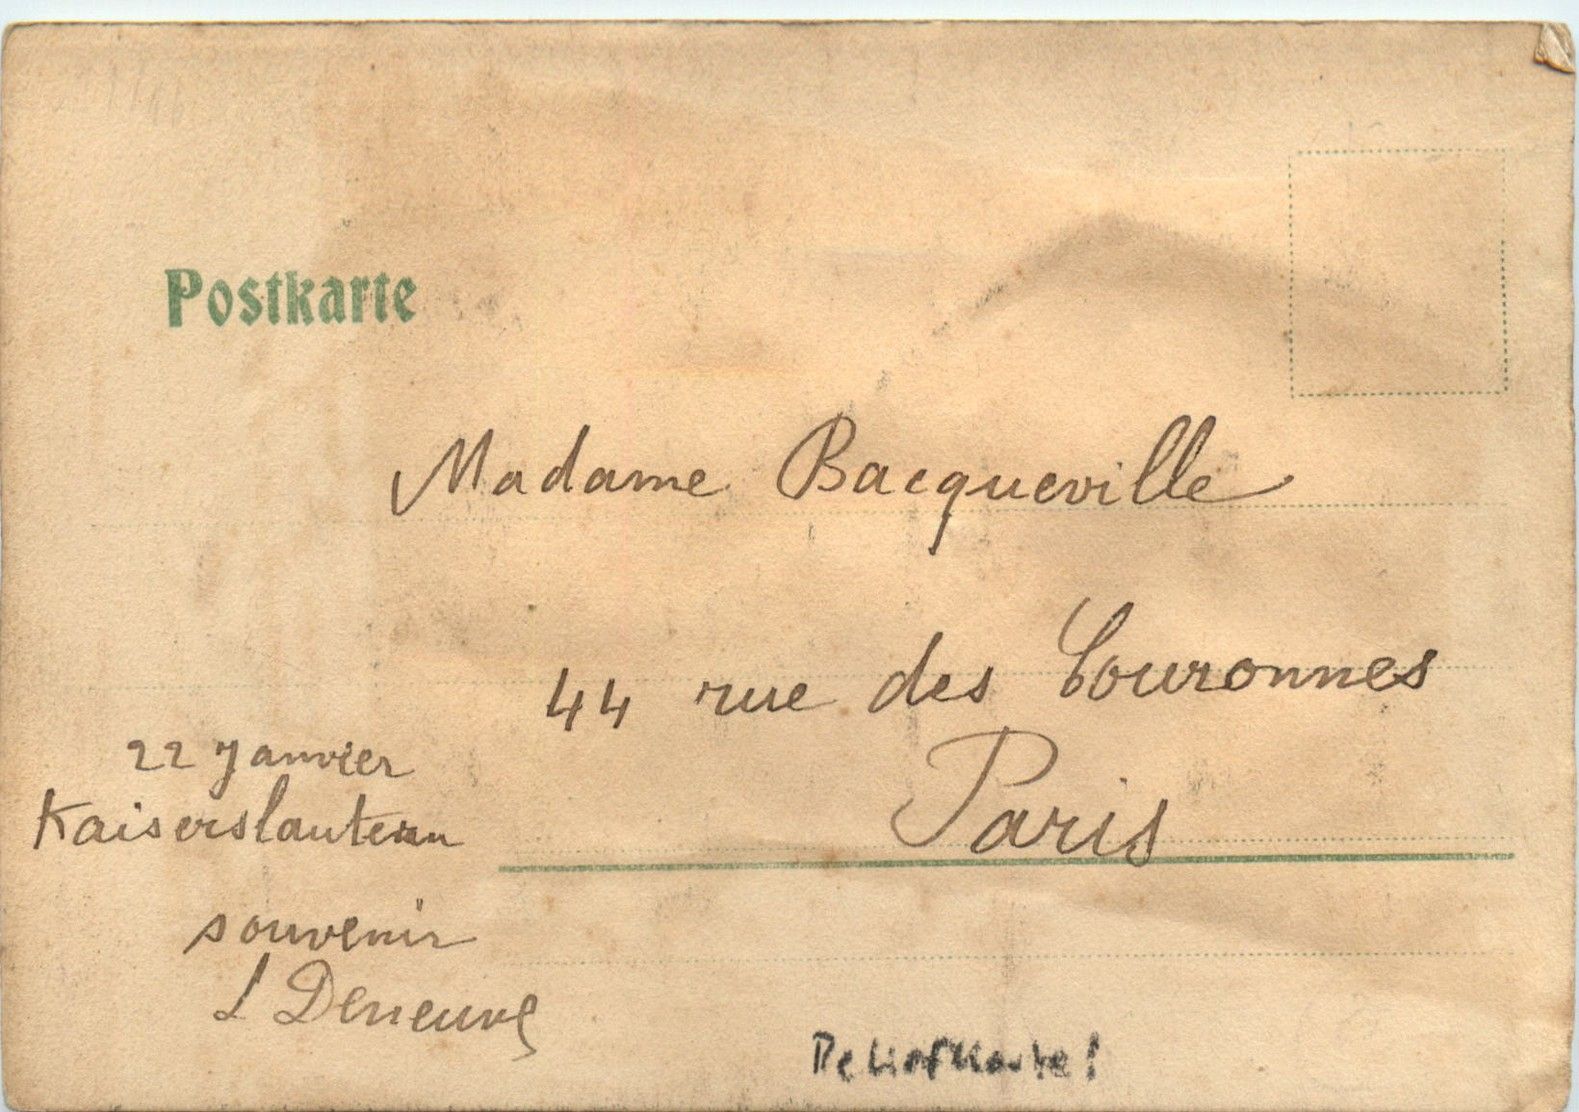 Postkarte
Madame Bacqueville
44 rue des Couronnes
Paris
22 Janvier
Kaiserslautern
souvenir
L Deneuve
Reliefkarte!